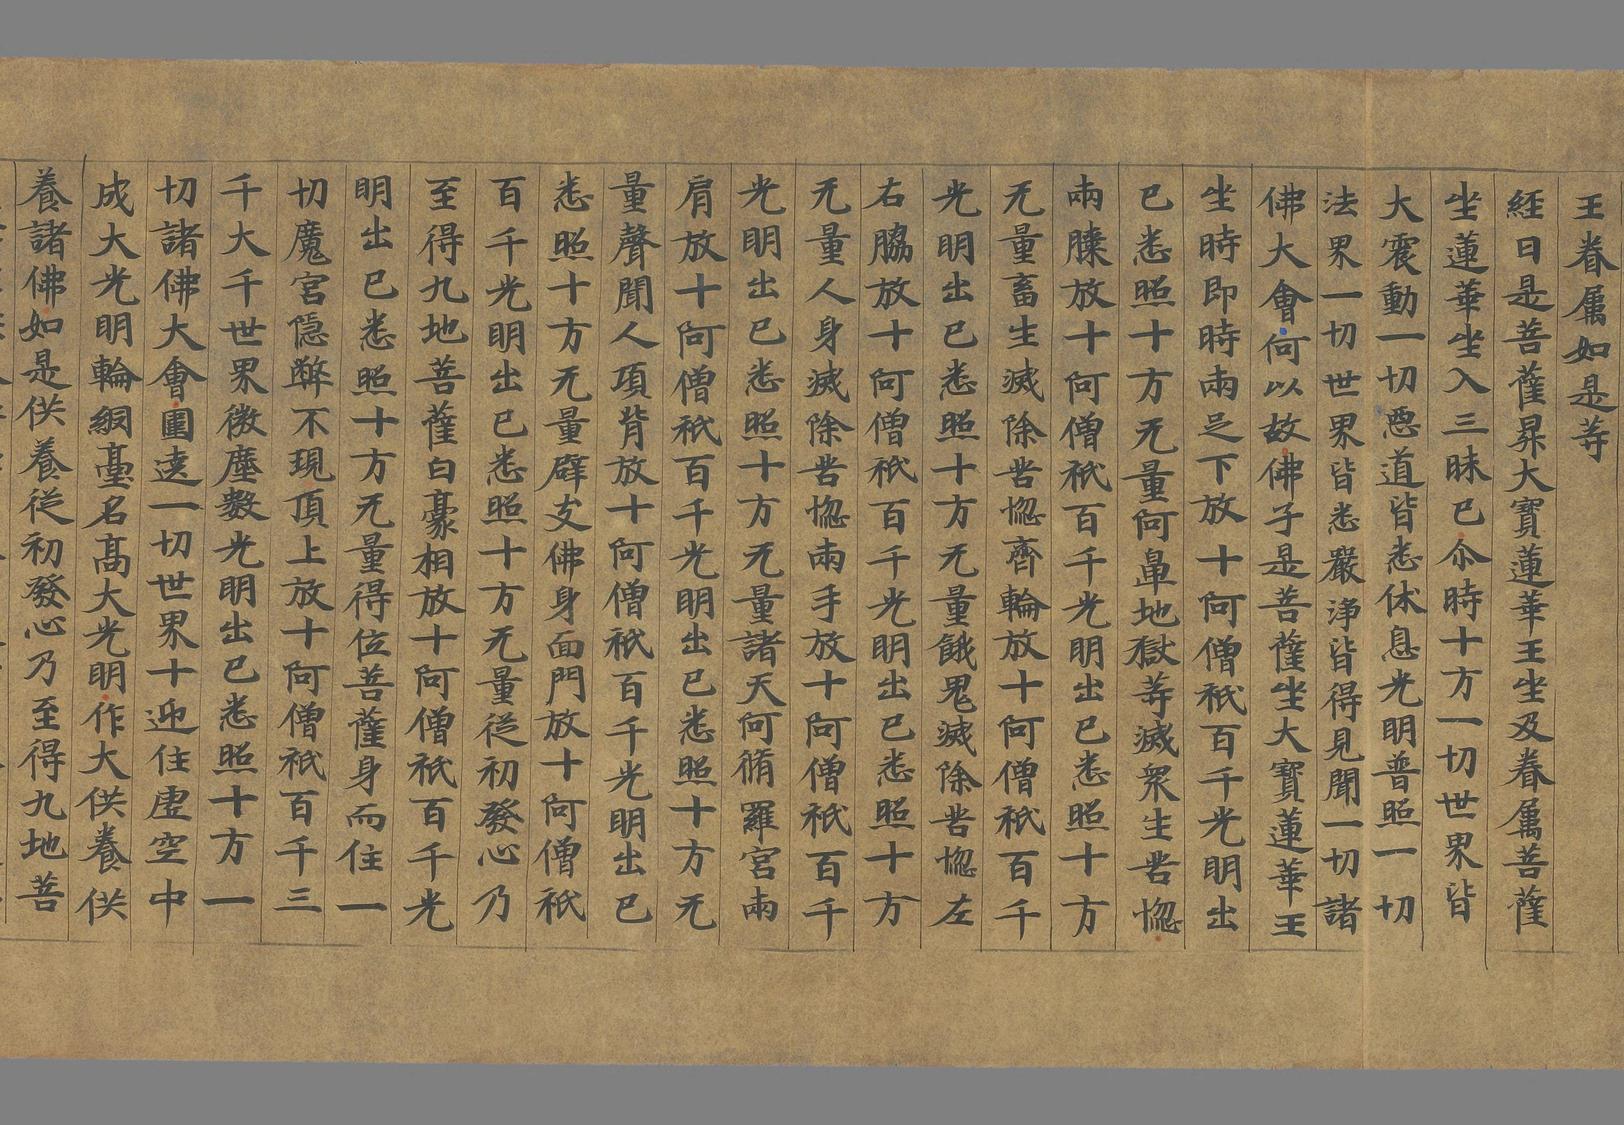 王眷屬如是等
經曰是菩薩昇大寶蓮華王坐及眷屬菩薩
坐蓮華坐入三昧已尒時十方一切世界皆
大震動一切惡道皆悉休息光明普照一切
法界一切世界皆悉嚴淨皆得見聞一切諸
佛大會何以故佛子是菩薩坐大寶蓮華王
坐時即時兩足下放十阿僧祇百千光明出
已悉照十方无量阿鼻地獄等滅衆生苦惱
兩膝放十阿僧祇百千光明出已悉照十方
无量畜生滅除苦惱齊輪放十阿僧祇百千
光明出已悉照十方无量餓鬼滅除苦惱左
右脇放十阿僧祇百千光明出已悉照十方
无量人身滅除苦惱兩手放十阿僧祇百千
光明出已悉照十方无量諸天阿脩羅宮兩
肩放十阿僧祇百千光明出已悉照十方无
量聲聞人項背放十阿僧祇百千光明出已
悉照十方无量辟支佛身面門放十阿僧祇
百千光明出已悉照十方无量從初發心乃
至得九地菩薩白豪相放十阿僧祇百千光
明出已悉照十方无量得位菩薩身而住一
切魔宮隱弊不現頂上放十阿僧祇百千三
千大千世界微塵數光明出已悉照十方一
切諸佛大會圍遶一切世界十迊住虛空中
成大光明輪網臺名髙大光明作大供養供
養諸佛如是供養從初發心乃至得九地菩